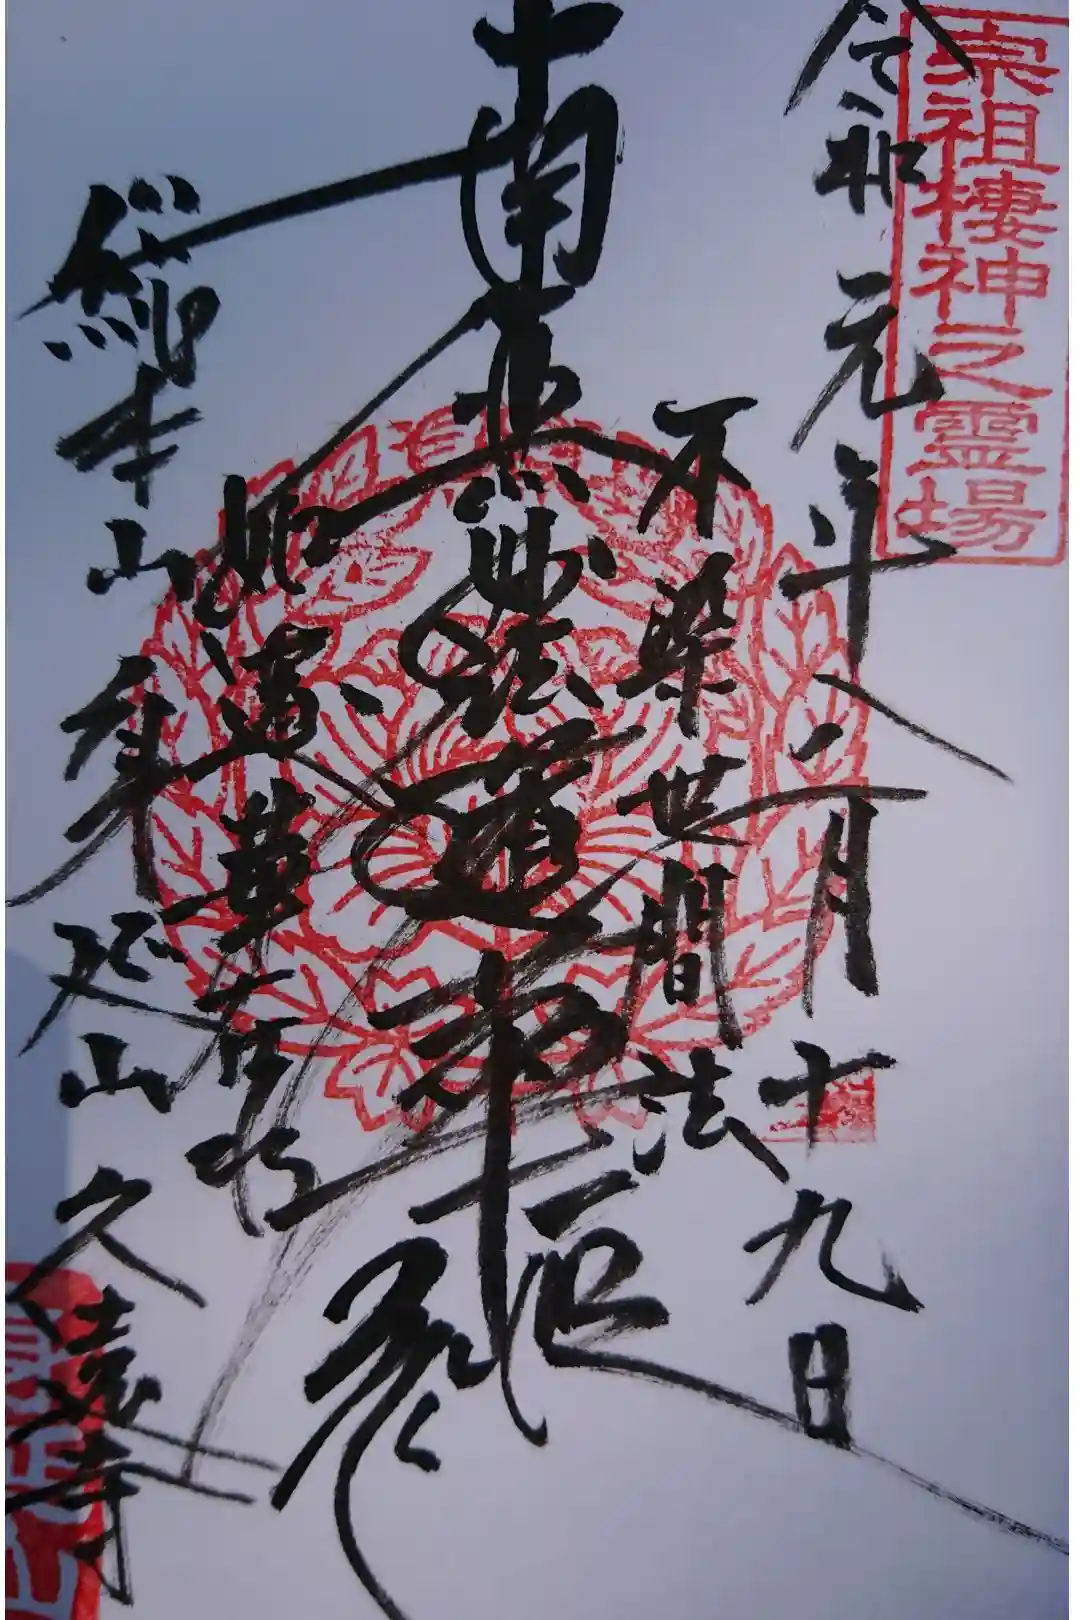 宗祖棲神之霊場
令和元年十二月十九日
不染世間法
南無妙法蓮華経
如蓮華在水
総本山身延山久遠寺